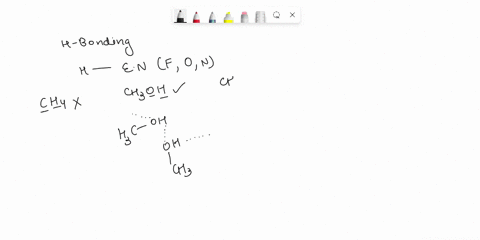 H-Bonding
H — E.N (F, O, N)
CH3OH ✓
CH4 X
H3C-OH
OH
CH3